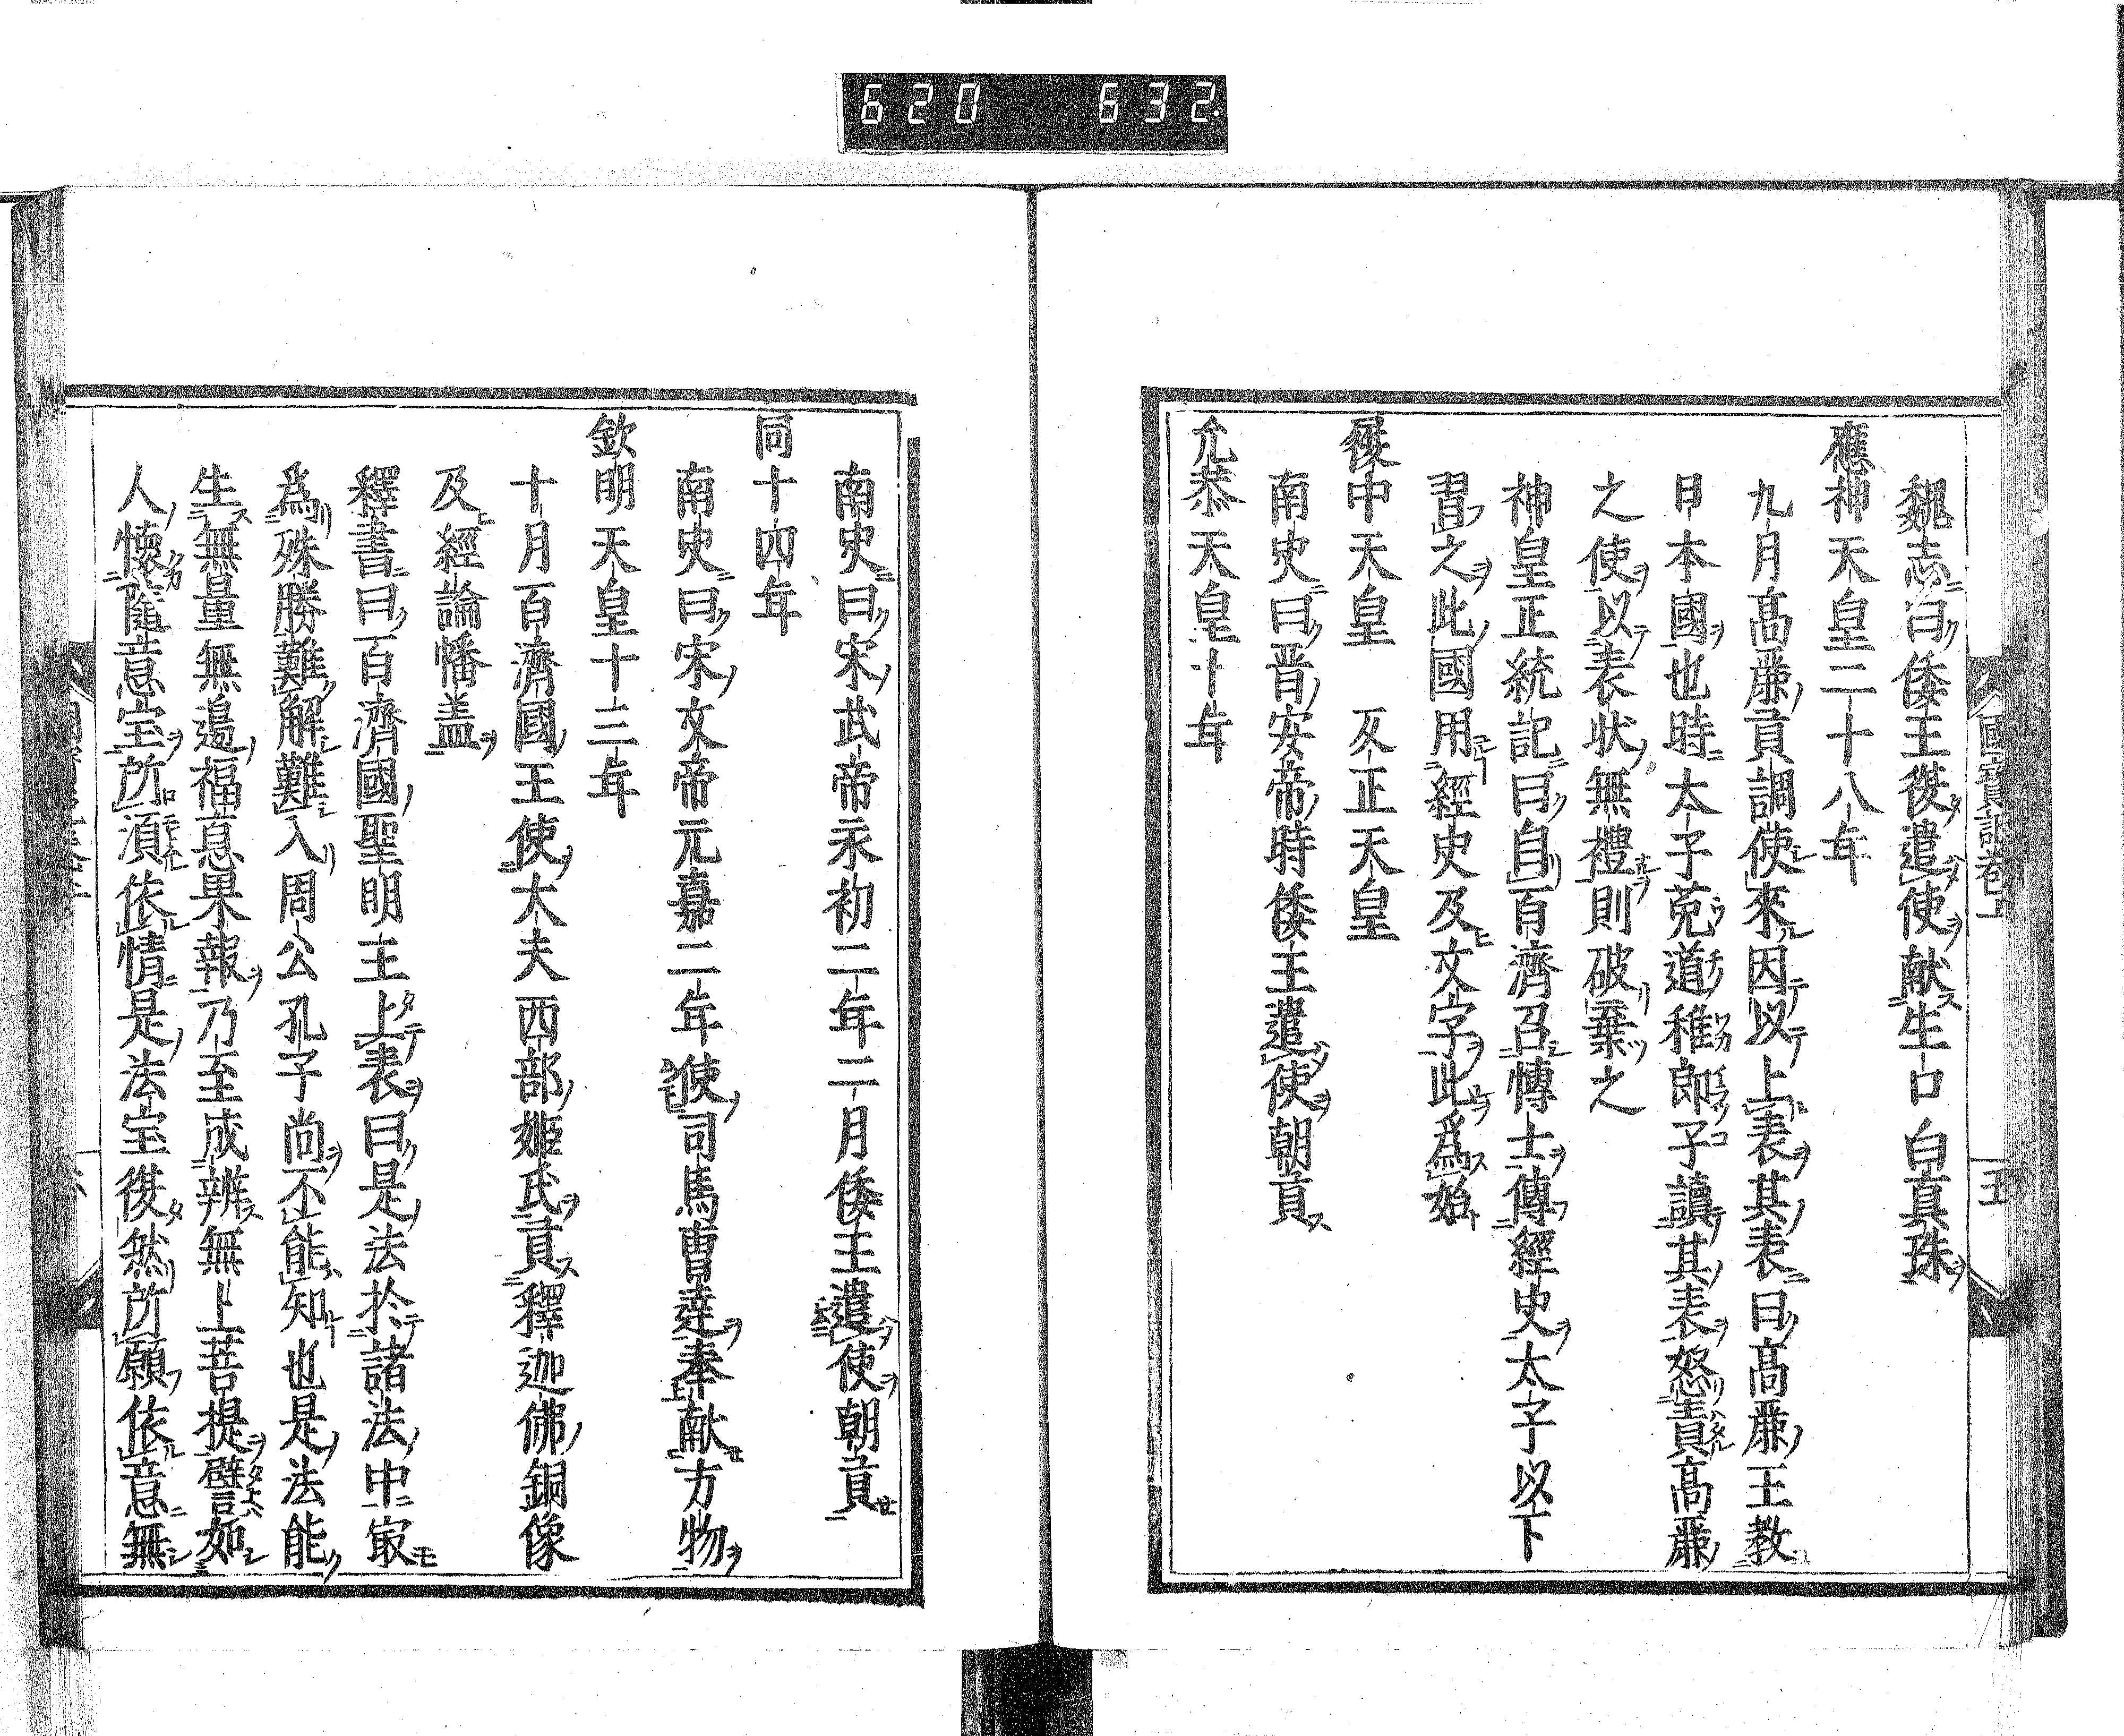 620 632
魏志曰倭王復遣使献生口白真珠
應神天皇二十八年
九月髙麗貢調使來因以上表其表曰髙麗王教
日本國也時太子菟道稚郎子讀其表怒責髙麗
之使以表状無禮則破棄之
神皇正統記曰自百濟召博士傳經史太子以下
習之此國用經史及文字此爲始
履中天皇 反正天皇
南史曰晋安帝時倭王遣使朝貢
允恭天皇十年
南史曰宋武帝永初二年二月倭王遣使朝貢
同十四年
南史曰宋文帝元嘉二年使司馬曹達奉献方物
欽明天皇十三年
十月百濟國王使大夫西部姫氏貢釋迦佛銅像
及經論幡盖
釋書曰百濟國聖明王上表曰是法於諸法中冣
爲殊勝難解難入周公孔子尚不能知也是法能
生無量無邉福惪果報乃至成辨無上菩提譬如
人懐随意宝所須依情是法宝復然所願依意無
國寳記巻上
五